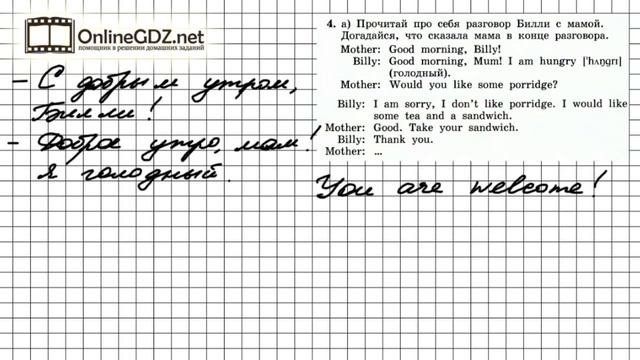 OnlineGDZ.net
помощник в решении домашних заданий
4. а) Прочитай про себя разговор Билли с мамой.
Догадайся, что сказала мама в конце разговора.
Mother: Good morning, Billy!
Billy: Good morning, Mum! I am hungry [ˈhʌŋgrɪ]
(голодный).
Mother: Would you like some porridge?
Billy: I am sorry, I don't like porridge. I would like
some tea and a sandwich.
Mother: Good. Take your sandwich.
Billy: Thank you.
Mother: ...
– С добрым утром,
Билли!
– Доброе утро, мам!
Я голодный.
You are welcome!